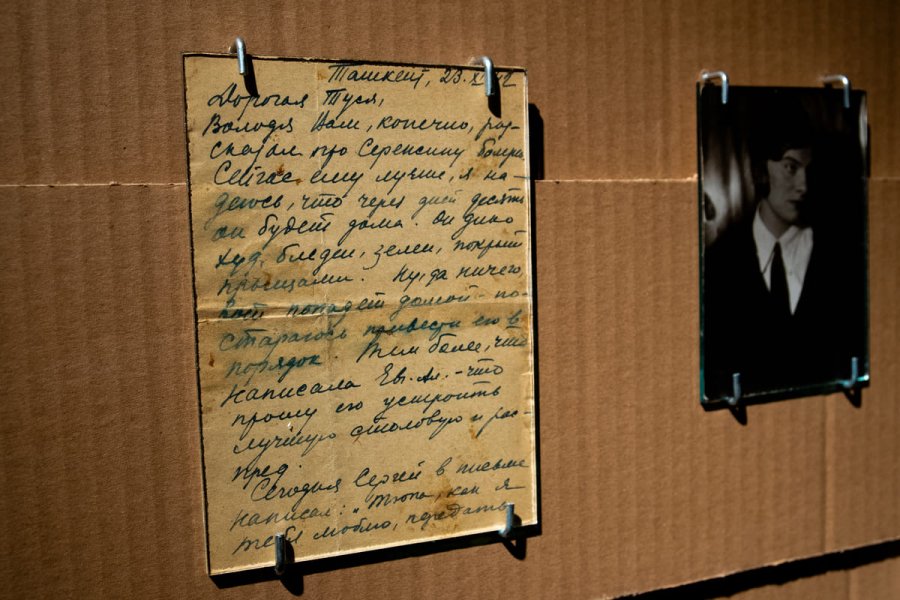 Ташкент, 23.XI.42
Дорогая Туся,
Володя Вам, конечно, рас-
сказал про Сережину болезнь
Сейчас ему лучше, я на-
деюсь, что через дней десять
он будет дома. Он дико
худ, бледен, зелен, покрыт
прыщами. Ну, да ничего,
вот попадет домой - по-
стараюсь привести его в
порядок. Тем более, что
написала Евг. Ал. - что
прошу его устроить
лучшую столовую и рас-
пред.
Сегодня Сергей в письме
написал: "Тюпа, как я
тебя люблю, передать